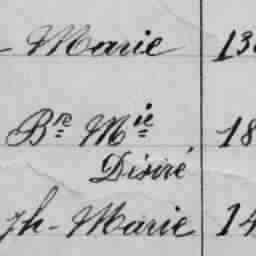 - Marie 13
Bre Mie 18
Désiré
Jh - Marie 14